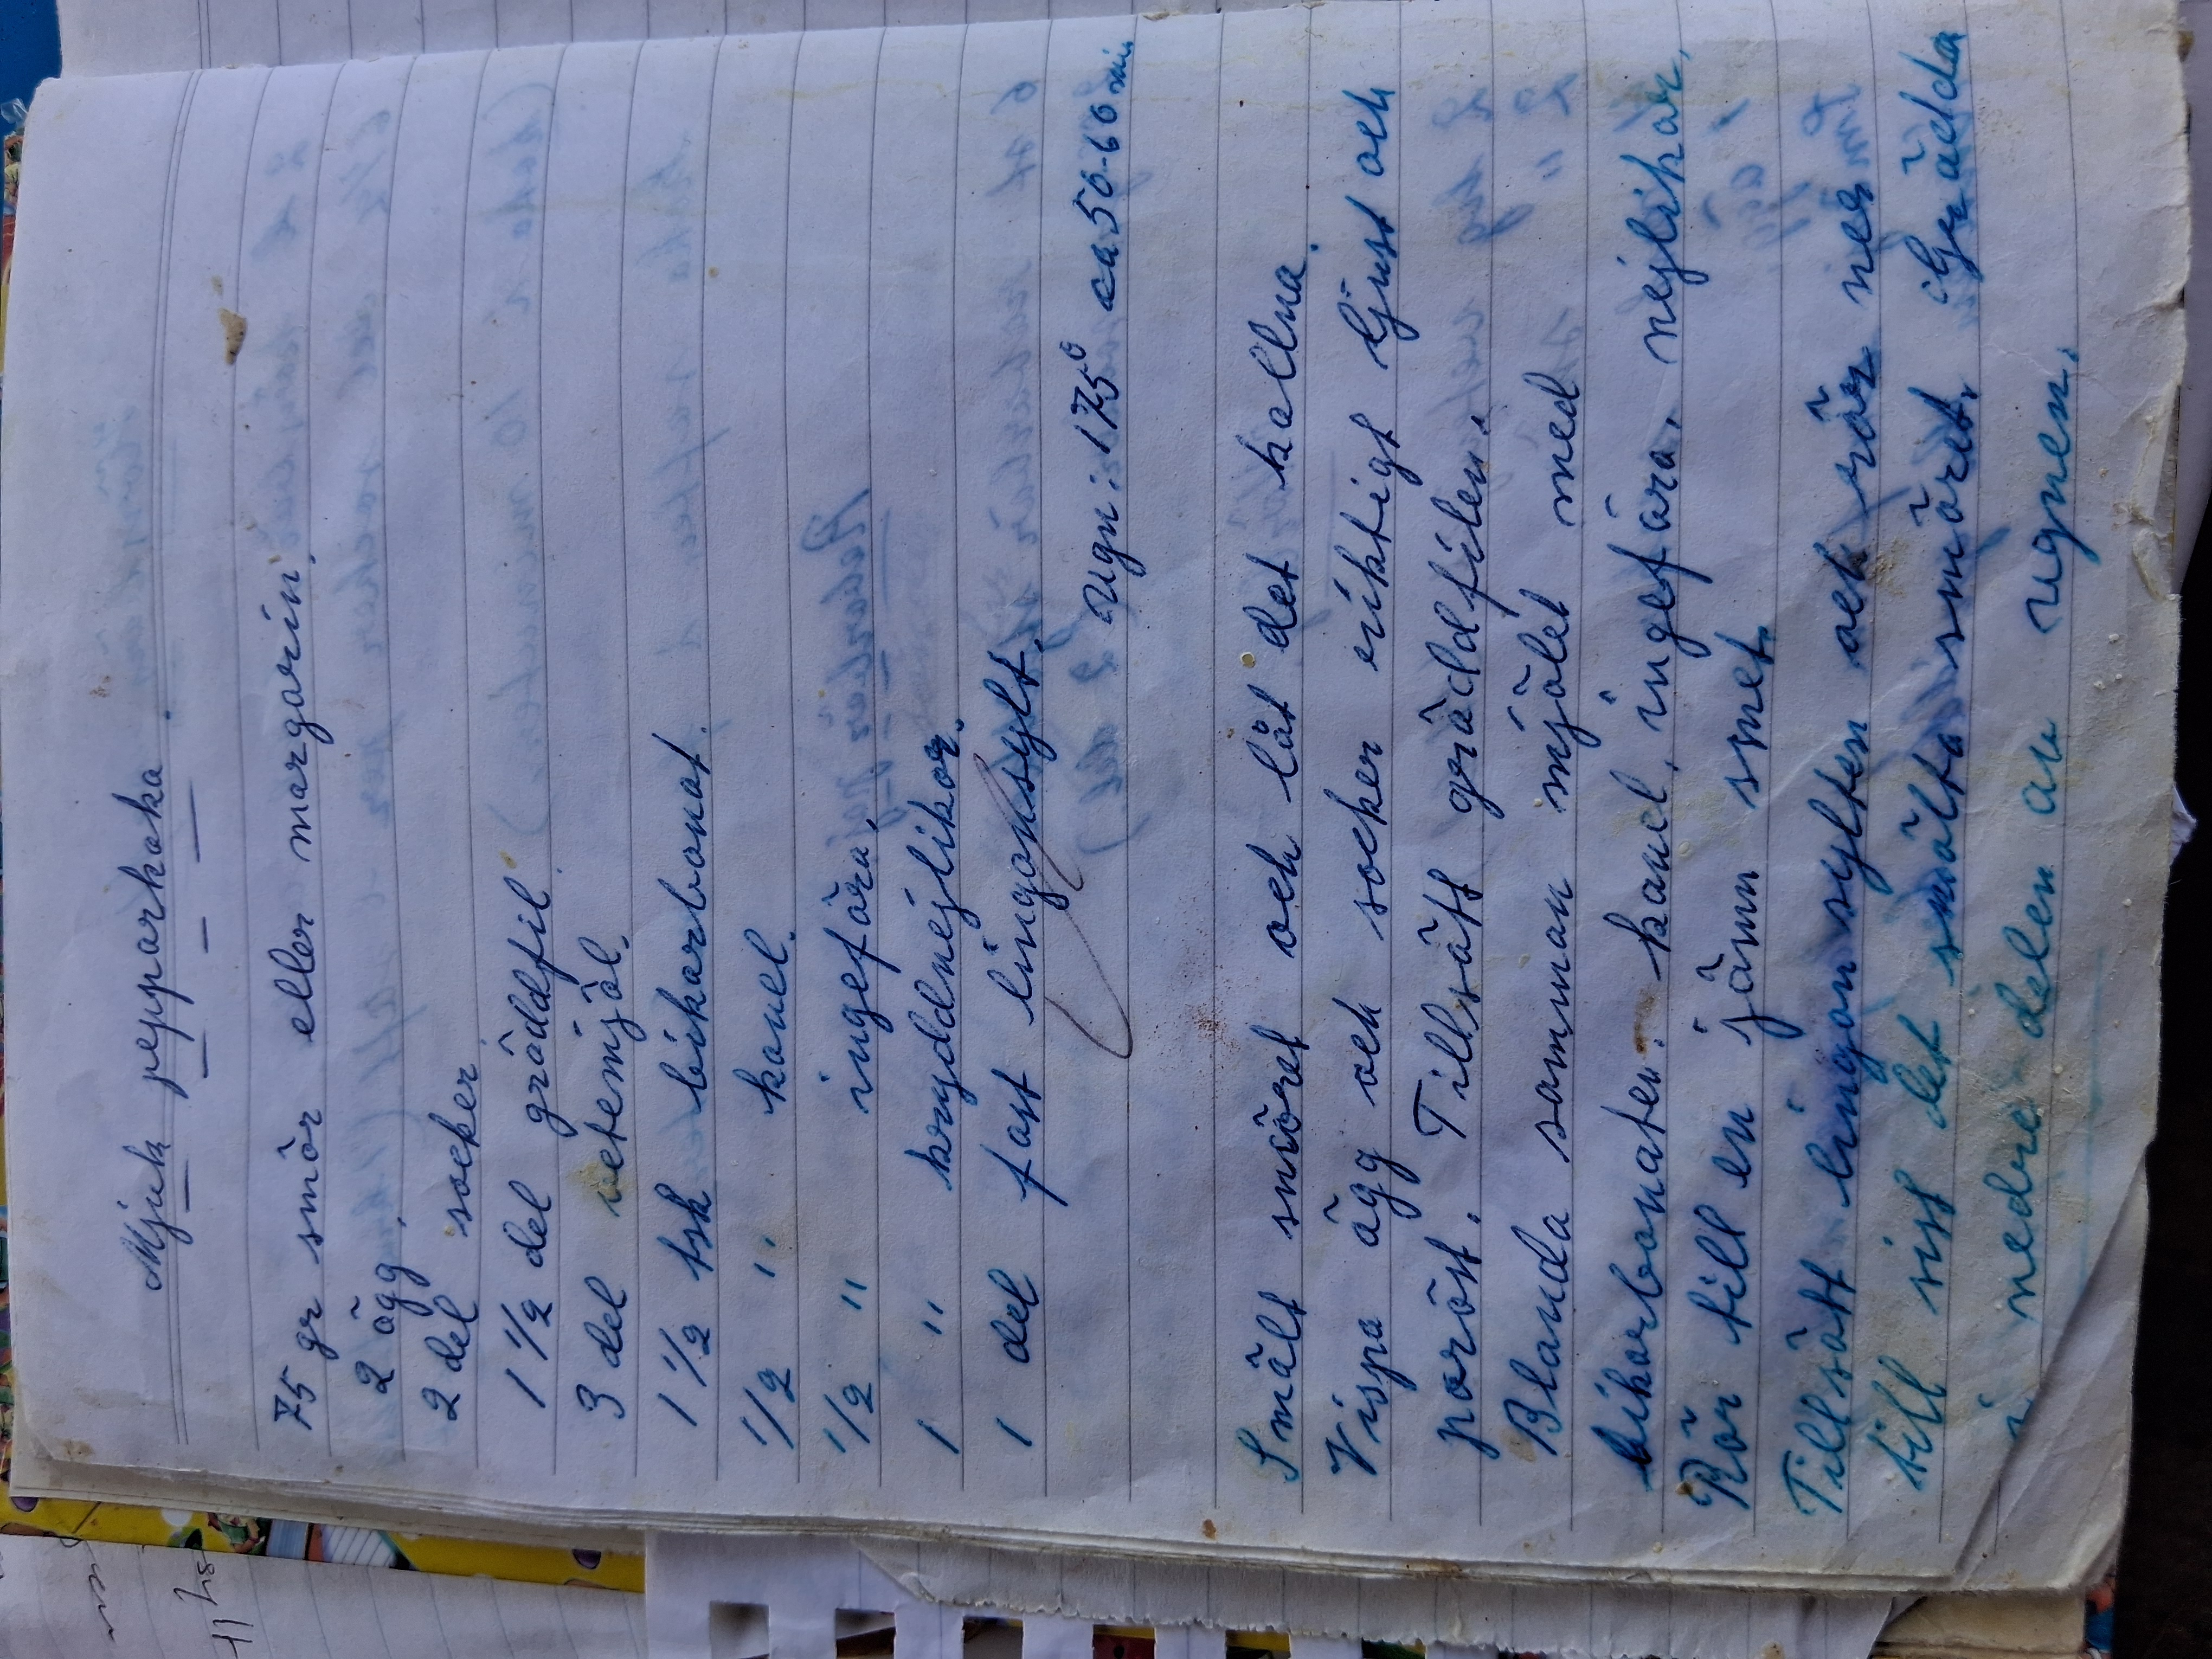 Mjuk pepparkaka.
75 gr smör eller margarin.
2 ägg.
2 del socker
1 1/2 del gräddfil
3 del vetemjöl.
1 1/2 tsk bikarbonat.
1/2 " kanel.
1/2 " ingefära.
1 " kryddnejlikor.
1 del fast lingonsylt.
Ugn: 175° ca 50-60 min
Smält smöret och låt det kallna.
Vispa ägg och socker riktigt ljust och
poröst. Tillsätt gräddfilen.
Blanda samman mjölet med
bikarbonaten. kanel, ingefära, nejlikor.
Rör till en jämn smet.
Tillsätt lingonsylten och rör ner
till sist det smälta smöret. Grädda
i nedre delen av ugnen.